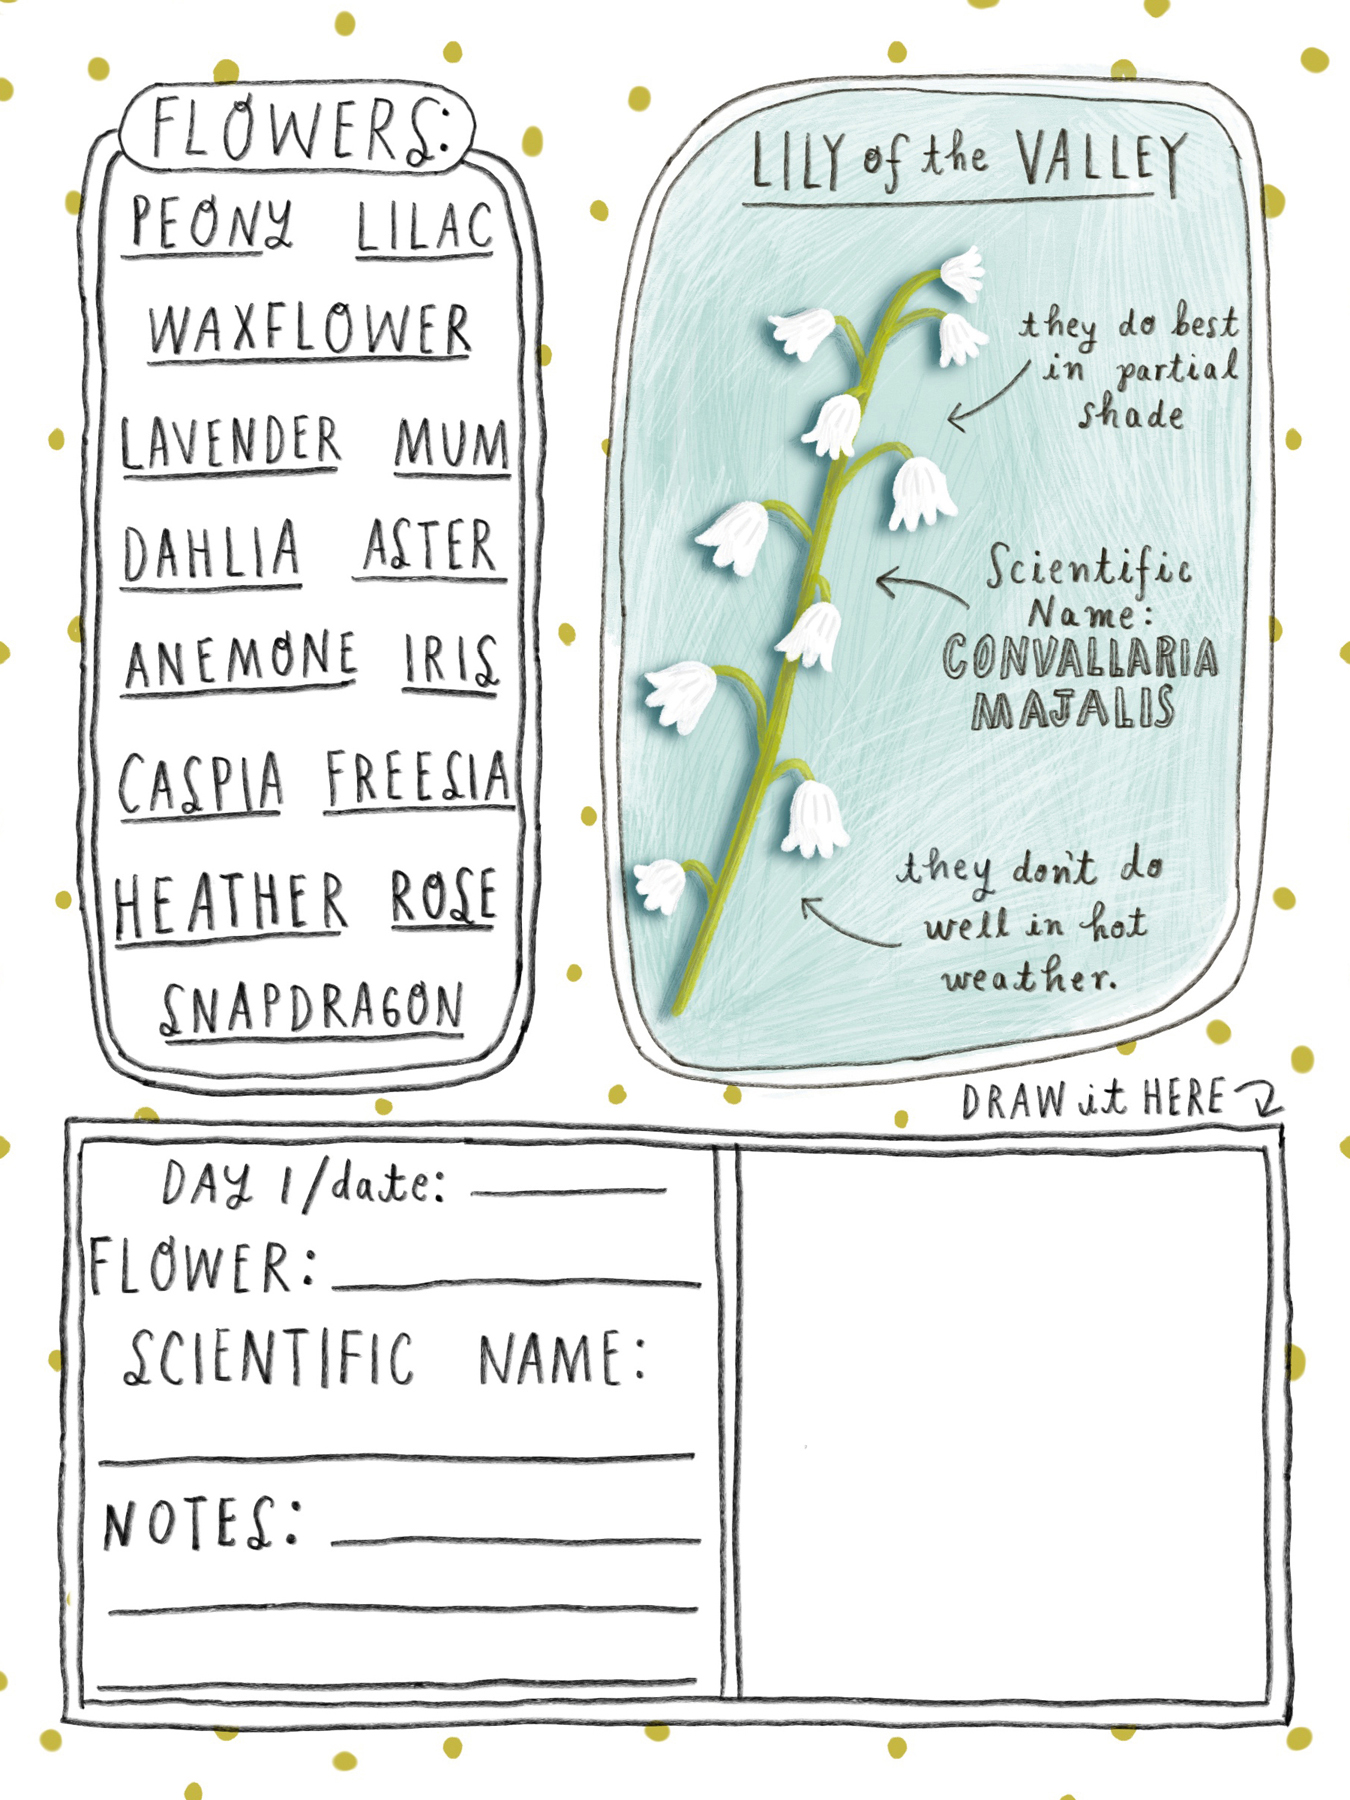 FLOWERS:
PEONY LILAC
WAXFLOWER
LAVENDER MUM
DAHLIA ASTER
ANEMONE IRIS
CASPIA FREESIA
HEATHER ROSE
SNAPDRAGON
LILY of the VALLEY
they do best
in partial
shade
Scientific
Name:
CONVALLARIA
MAJALIS
they don't do
well in hot
weather.
DRAW it HERE
DAY 1/date:
FLOWER:
SCIENTIFIC NAME:
NOTES: